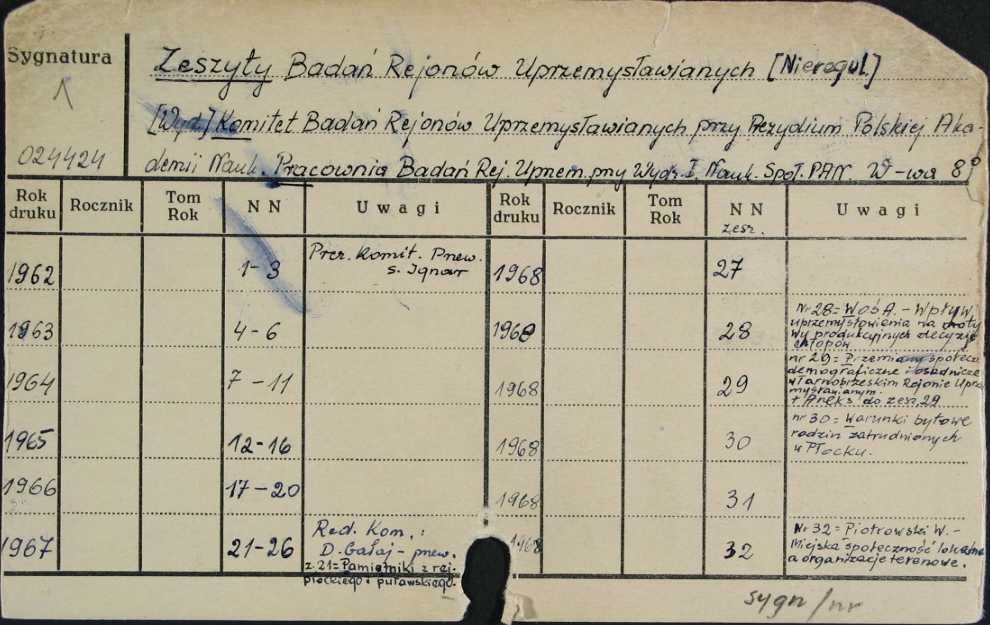 Sygnatura
Zeszyty Badań Rejonów Uprzemysławianych [Nieregul.]
[Wyd.] Komitet Badań Rejonów Uprzemysławianych przy Prezydium Polskiej Aka-
024424
demii Nauk. Pracownia Badań Rej. Uprzem. przy Wydz. I. Nauk. Społ. PAN. W-wa 8°
Rok druku Rocznik Tom Rok N N Uwagi Rok druku Rocznik Tom Rok N N zesz. Uwagi
1962 1-3 Prez. Komit. Przew. 1968 27
S. Ignar
1963 4-6 1968 28 Nr 28= Woś A. - Wpływ
uprzemysłowienia na
wy produkcyjnych decyzje
chłopów
1964 7-11 1968 29 nr 29= Przemiany społecz
demograficzne i osadnicze
w Tarnobrzeskim Rejonie Uprze
mysławianym.
+ Aneks do zesz. 29
1965 12-16 1968 30 nr 30= Warunki bytowe
rodzin zatrudnionych
w Płocku.
1966 17-20 1968 31
1967 21-26 Red. Kom.: 1968 32 Nr 32= Piotrowski W.-
D. Gałaj - przew. Miejska społeczność lokalna
z. 21= Pamiętniki z rej. a organizacje terenowe.
płockiego i puławskiego.
sygn/nr